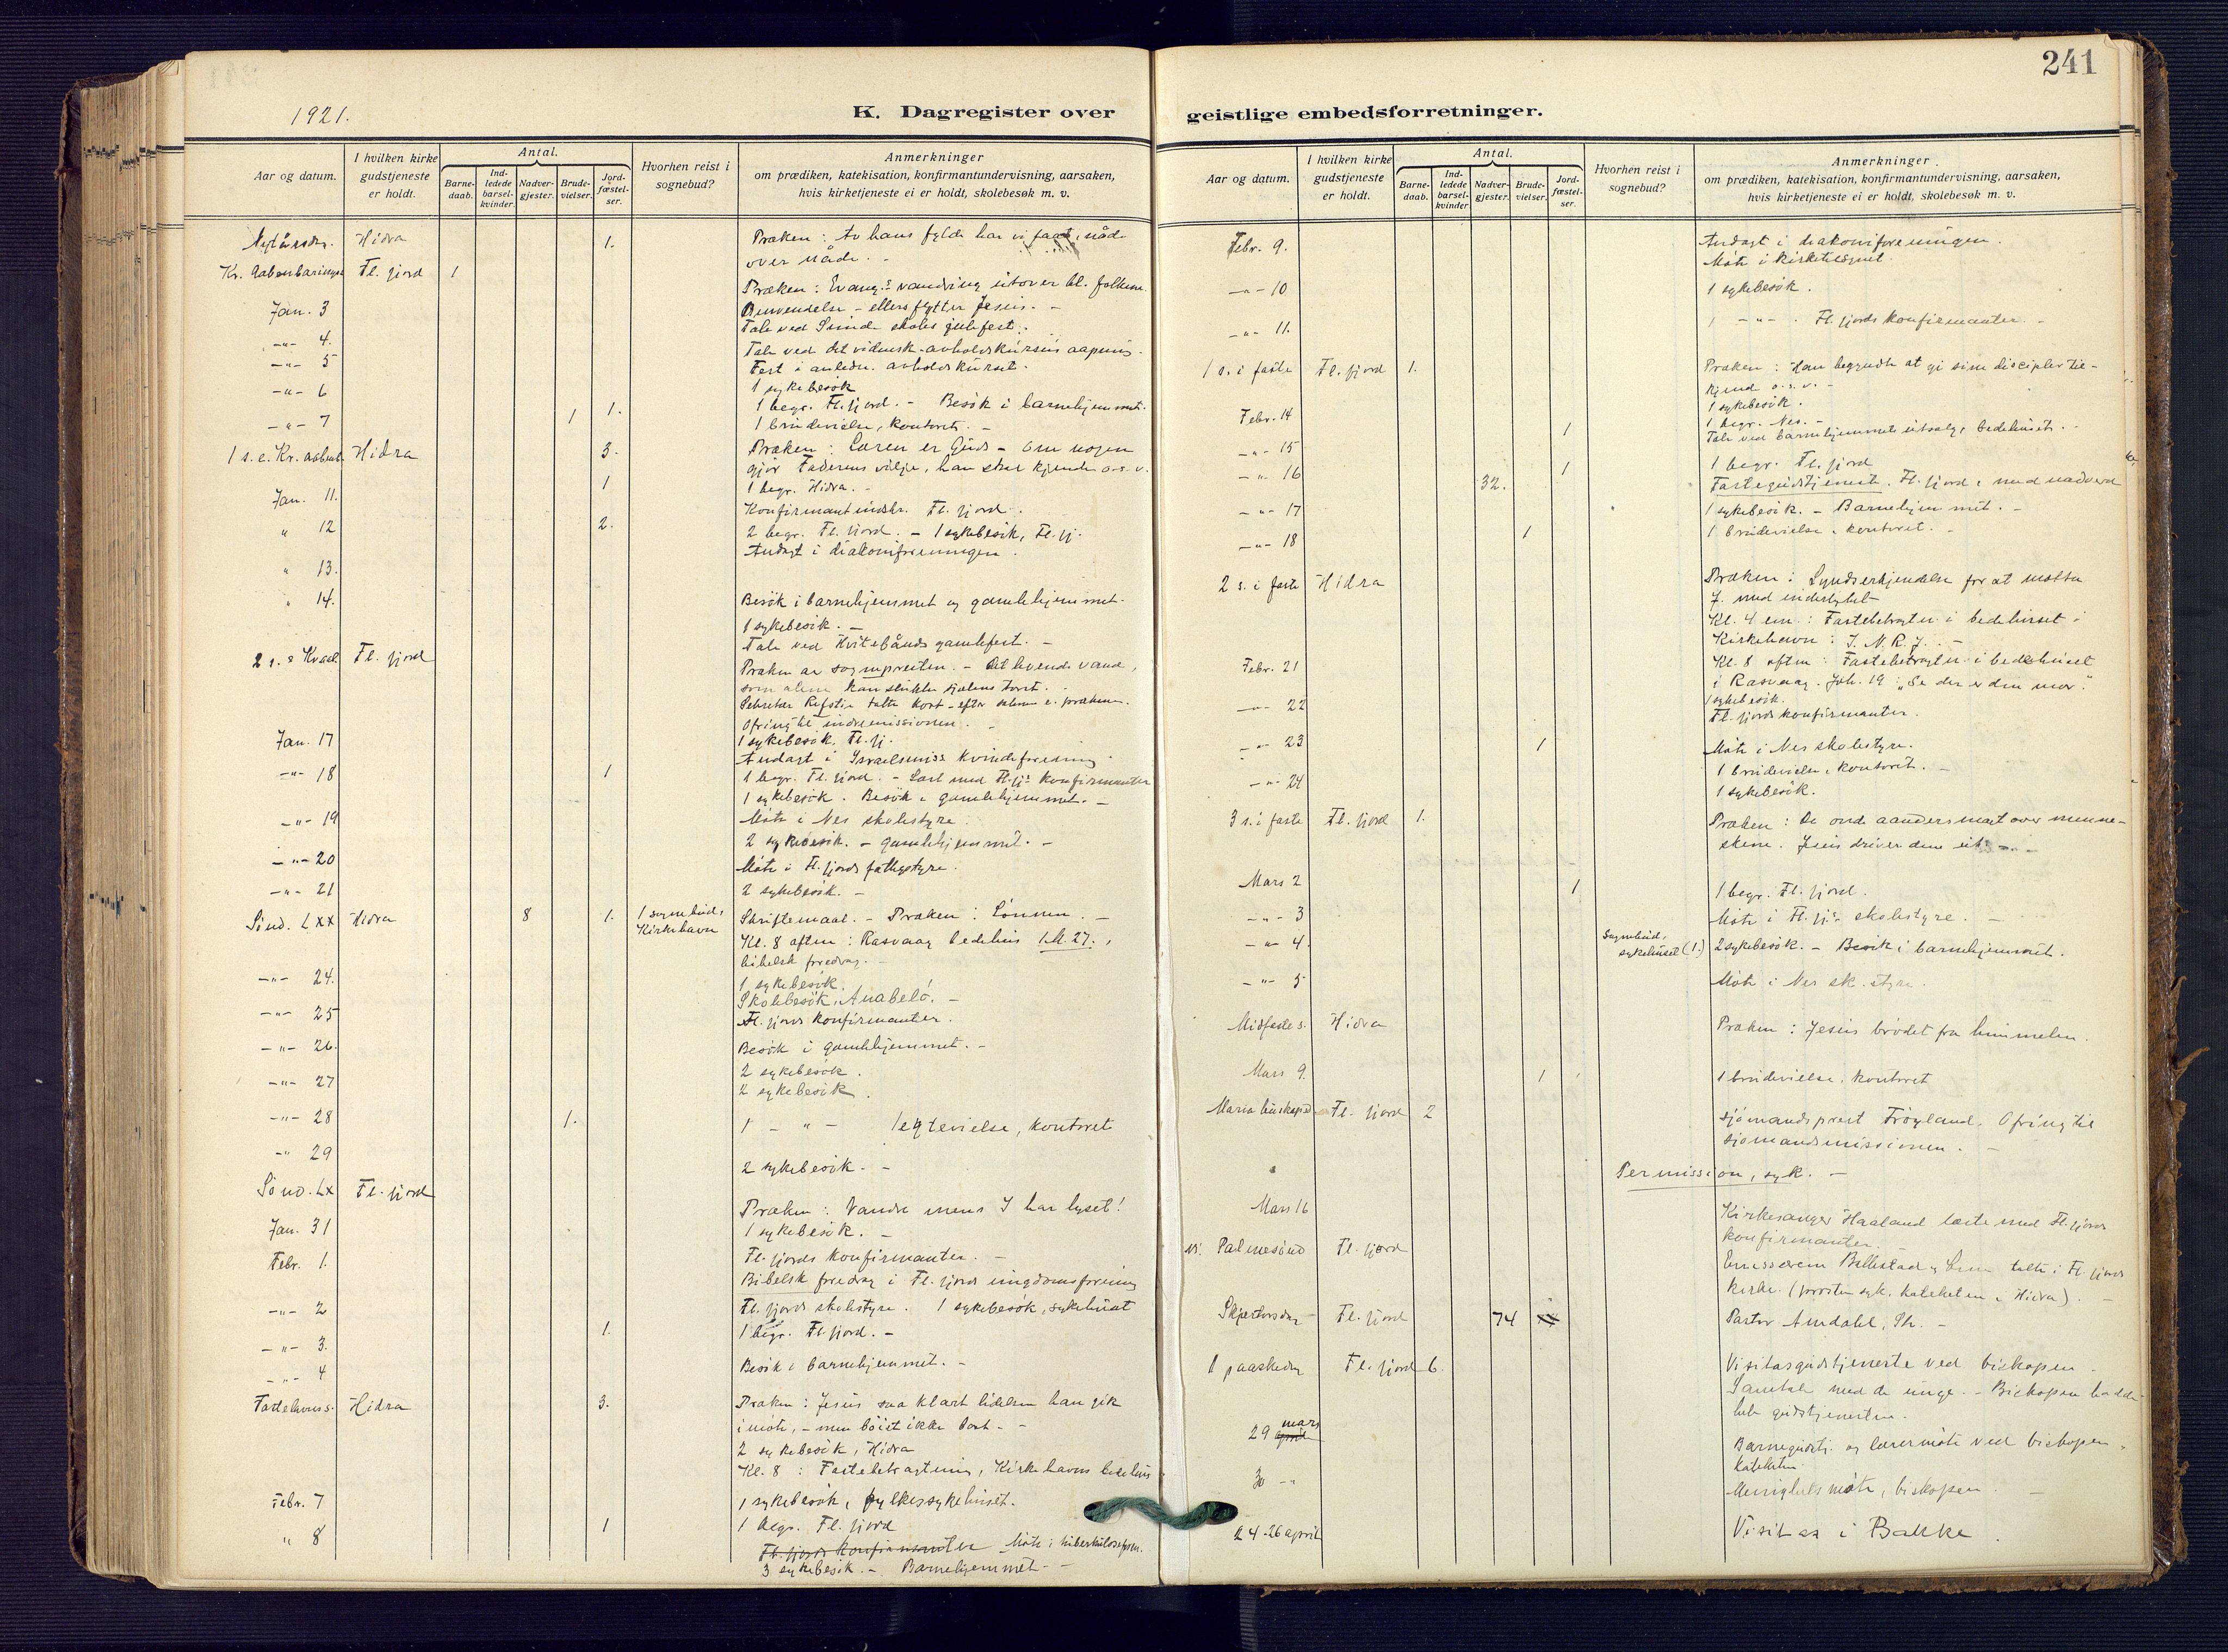 241
1921.
K. Dagregister over
Aar og datum.
I hvilken kirke
gudstjeneste
er holdt.
Antal.
Barne-
daab.
Ind-
ledede
barsel-
kvinder.
Nadver-
gjester.
Brude-
vielser.
Jord-
fæstel-
ser.
Hvorhen reist i
sognebud?
Anmerkninger
om prædiken, katekisation, konfirmantundervisning, aarsaken,
hvis kirketjeneste ei er holdt, skolebesøk m. v.
Nytårsdag. Hidra 1. Præken: Av hans fylde har vi faat, nåde
over nåde. -
Kr. Aabenbaringsd Fl. fjord 1
Præken: Evang.s vandring utover til folkene.
Omvendelse - ellers flytter Jesus. -
Jan. 3 Tale ved Sunde skoles julefest.
-"- 4. Tale ved det vidensk. avholdskursus aapning.
-"- 5 Fest i anledn. avholdskurset.
-"- 6 1 sykebesøk
-"- 7 1 1. 1 begr. Fl. fjord. - Besøk i barnehjemmet.
1 brudevielse, kontoret. -
1 s. e. Kr. aabenb. Hidra 3. Præken: Læren er Guds - om nogen
gjør Faderens vilje, han skal kjende o.s.v.
Jan. 11. 1 1 begr. Hidra. -
Konfirmantindskr. Fl. fjord.
" 12 2. 2 begr. Fl. fjord. - 1 sykebesøk, Fl. fj.
" 13. Andagt i diakoniforeningen.
" 14. Besøk i barnehjemmet og gamlehjemmet.
1 sykebesøk. -
Tale ved Hvitebånds gamlefest. -
2 s. e Fl. fjord Præken av sognepresten. - Det levende vand,
som alene kan slukke sjælens tørst.
Ofring til indremissionen. -
Jan. 17 1 sykebesøk, Fl. fj.
Andagt i Israelsmiss. kvindeforening
-"- 18 1 1 begr. Fl. fjord. - Læst med Fl. fj.s konfirmanter
1 sykebesøk. Besøk i gamlehjemmet. -
-"- 19 Møte i Nes skolestyre.
2 sykebesøk. - gamlehjemmet. -
-"- 20 Møte i Fl. fjords fattigstyre.
-"- 21 2 sykebesøk. -
Sønd. Lxx Hidra 8 1. 1 sognebud,
Kirkehavn
Skriftemaal. - Præken: Lønnen. -
Kl. 8 aften: Rasvaag bedehus 1. M. 27.,
bibelsk foredrag. -
-"- 24. 1 sykebesøk.
Skolebesøk, Anabeló. -
-"- 25 Fl. fjords konfirmanter.
-"- 26. Besøk i gamlehjemmet. -
-"- 27 2 sykebesøk.
2 sykebesøk.
-"- 28 1. 1 - " - 1 egtevielse, kontoret
-"- 29 2 sykebesøk. -
Sønd. Lx Fl. fjord Præken: Vandre mens I har lyset!
Jan. 31 1 sykebesøk. -
Febr. 1. Fl. fjords konfirmanter. -
Bibelsk foredrag i Fl. fjords ungdomsforening
-"- 2 Fl. fjords skolestyre. 1 sykebesøk, sykehuset
-"- 3. 1. 1 begr. Fl. fjord. -
-"- 4 Besøk i barnehjemmet. -
Fastelavns. Hidra 3. Præken: Jesus saa klart lidelsen han gik
i møte, - men bøiet ikke bort -
2 sykebesøk, Hidra
Kl. 8: Fastebetragtning, Kirkehavns bedehus
Febr. 7 1 sykebesøk, fylkessykehuset.
" 8 1 1 begr. Fl. fjord
Fl. fjords konfirmanter Møte i tuberkulosehjem.
3 sykebesøk. - Barnehjemmet -
geistlige embedsforretninger.
Aar og datum.
I hvilken kirke
gudstjeneste
er holdt.
Antal.
Barne-
daab.
Ind-
ledede
barsel-
kvinder
Nadver-
gjester.
Brude-
vielser.
Jord-
fæstel-
ser.
Hvorhen reist i
sognebud?
Anmerkninger
om prædiken, katekisation, konfirmantundervisning, aarsaken,
hvis kirketjeneste ei er holdt, skolebesøk m. v.
Febr. 9. Andagt i diakoniforeningen.
Møte i kirketilsynet.
-"- 10 1 sykebesøk.
-"- 11. 1 -"- . Fl. fjords konfirmanter. -
1 s. i faste Fl. fjord 1. Præken: Han begyndte at gi sine disciple til-
kjende o.s.v. -
Febr. 14 1 sykebesøk.
1 1 begr. Nes. -
Tale ved barnehjemmets utsalg, bedehuset. -
-"- 15 1 1 begr. Fl. fjord
-"- 16 32. Fastegudstjeneste, Fl. fjord, med nadverd
-"- 17 1 sykebesøk. - Barnehjemmet. -
-"- 18 1 1 brudevielse, kontoret. -
2 s. i faste Hidra Præken: Synderkjendelse for at motta
J. med inderlighet
Kl. 4 em.: Fastebetragtn. i bedehuset i
Kirkehavn: I. N. R. J. -
Kl. 8 aften: Fastebetragtn. i bedehuset
i Rasvaag. Joh. 19: "Se der er din mor."
Febr. 21 1 sykebesøk.
-"- 22 Fl. fjords konfirmanter.
-"- 23 1 Møte i Nes skolestyre.
1 brudevielse, kontoret. -
-"- 24 1 sykebesøk.
3 s. i faste Fl. fjord 1. Præken: De onde aanders magt over menne-
skene. Jesus driver dem ut. -
Mars 2 1 1 begr. Fl. fjord.
-"- 3 Møte i Fl. fj.s skolestyre. -
-"- 4. Sognebud,
sykehuset (1.)
2 sykebesøk. - Besøk i barnehjemmet.
-"- 5 Møte i Nes sk. styre.
Midfaste s. Hidra Præken: Jesus brødet fra himmelen.
Mars 9. 1 1 brudevielse, kontoret
Maria budskapsd. Fl. fjord 2 sjømandsprest Frøyland. Ofring til
sjømandsmissionen. -
Permission, syk. -
Mars 16 Kirkesanger Haaland læste med Fl. fjords
konfirmanter.
Palmesønd Fl. fjord talte i Fl. fjords
kirke. (presten syk. kateketen i Hidra). -
Skjærtorsdag Fl. fjord 74 Pastor Amdahl, -
1 paaskedag Fl. fjord 6. Visitasgudstjeneste ved biskopen.
Samtale med de unge. - Biskopen hadde
hele gudstjenesten.
29 april mars Barnegudstj. og lærermøte ved biskopen.
kateketen.
30 -"- Menighetsmøte, biskopen. -
24-26 april Visitas i Bakke